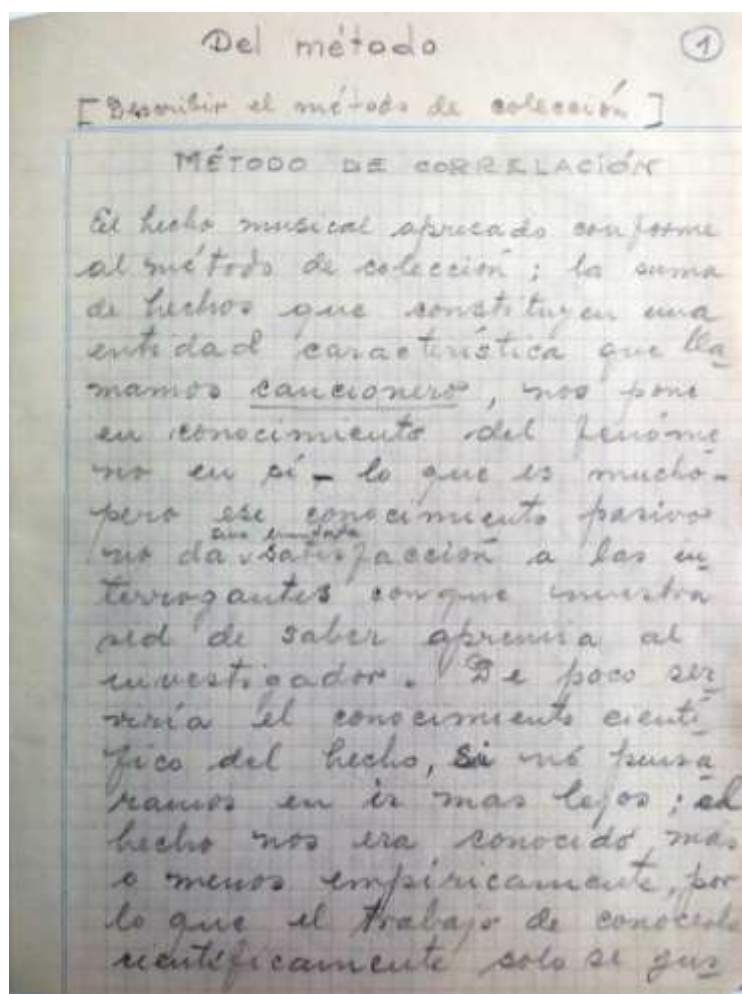 Del método
1
[Describir el método de colección]
MÉTODO DE CORRELACIÓN
El hecho musical apreciado conforme
al método de colección; la suma
de hechos que constituyen una
entidad característica que lla
mamos cancionero, nos pone
en conocimiento del fenóme
no en sí - lo que es mucho -
pero ese conocimiento pasivo
no da satisfacción a las in
terrogantes con que nuestra
sed de saber apremia al
investigador. De poco ser
viría el conocimiento cientí
fico del hecho, si nó pensá
ramos en ir mas lejos; el
hecho nos era conocido mas
o menos empíricamente, por
lo que el trabajo de conocerlo
cientificamente solo se jus